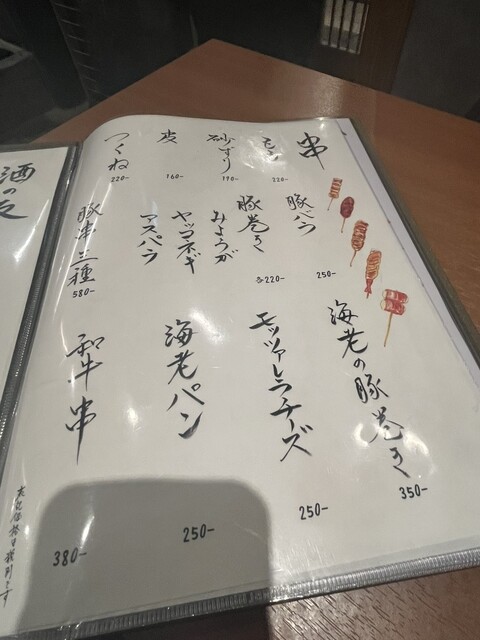 串
モモ
220-
砂ずり
190-
皮
160-
つくね
220-
豚バラ
250-
豚巻き
みょうが
ヤッコネギ
アスパラ
各220-
豚串三種
580-
海老の豚巻き
350-
モッツァレラチーズ
250-
海老パン
250-
和牛串
380-
表記価格は税別です
酒の友